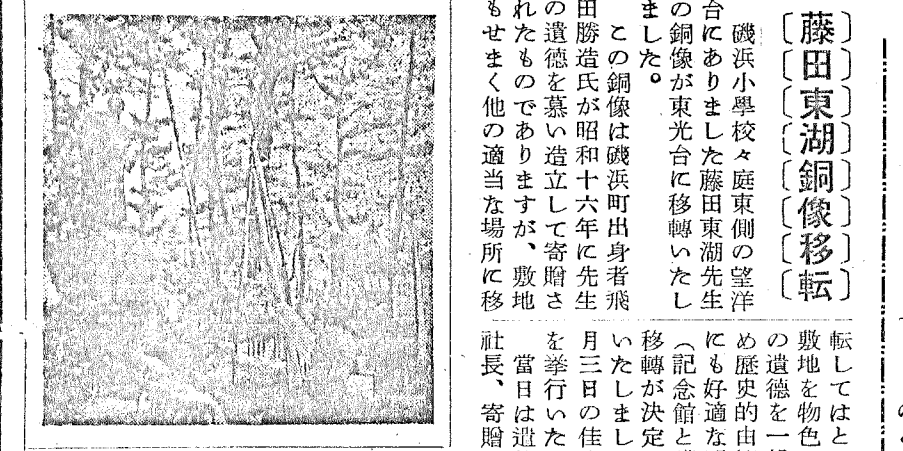 〔藤〕〔田〕〔東〕〔湖〕〔銅〕〔像〕〔移〕〔転〕
磯浜小學校々庭東側の望洋
台にありました藤田東湖先生
の銅像が東光台に移轉いたし
ました。
この銅像は磯浜町出身者飛
田勝造氏が昭和十六年に先生
の遺徳を慕い造立して寄贈さ
れたものでありますが、敷地
もせまく他の適当な場所に移
転してはと
敷地を物色
の遺徳を一
め歴史的由
にも好適な
（記念館と
移轉が決定
いたしまし
月三日の佳
を挙行いた
當日は遺
社長、寄贈